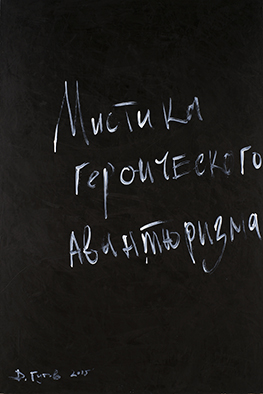 Мистика
героического
авантюризма
Д. Гутов 2015